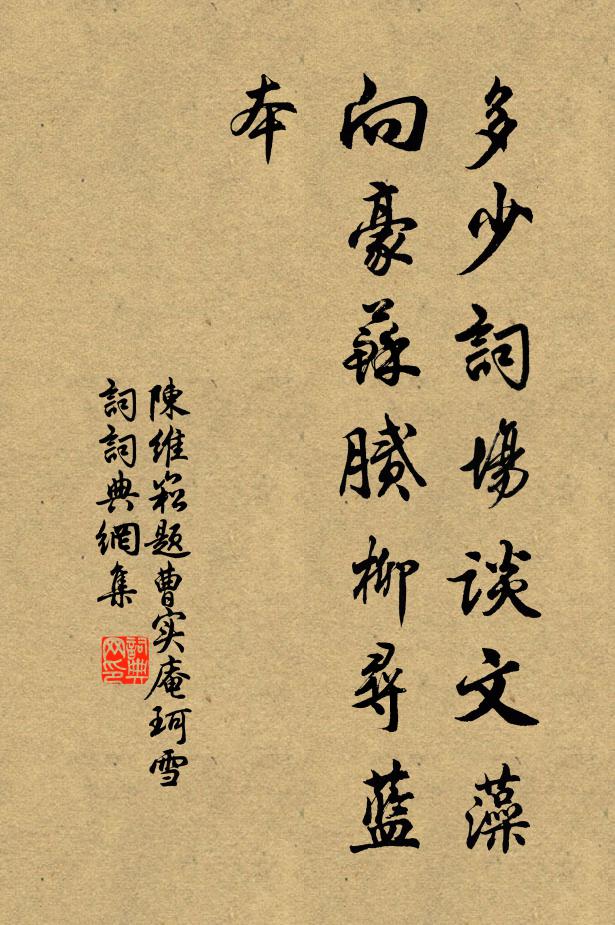 多少詞場談文藻
向豪蘇膩柳尋藍
本
陳維崧題曹实庵珂雪
詞詞典網集
詞典
网印